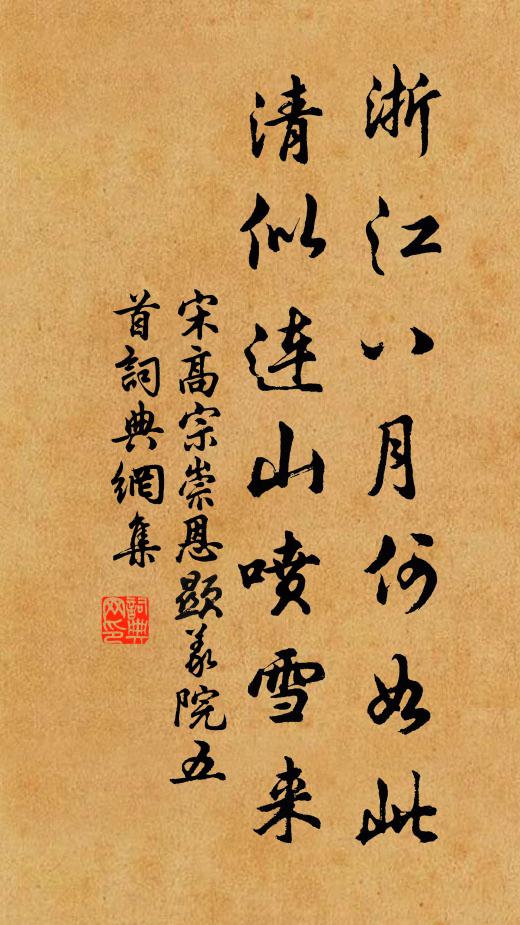 浙江八月何如此
清似連山噴雪来
宋高宗崇恩顯義院五
首詞典網集
詞典
网印